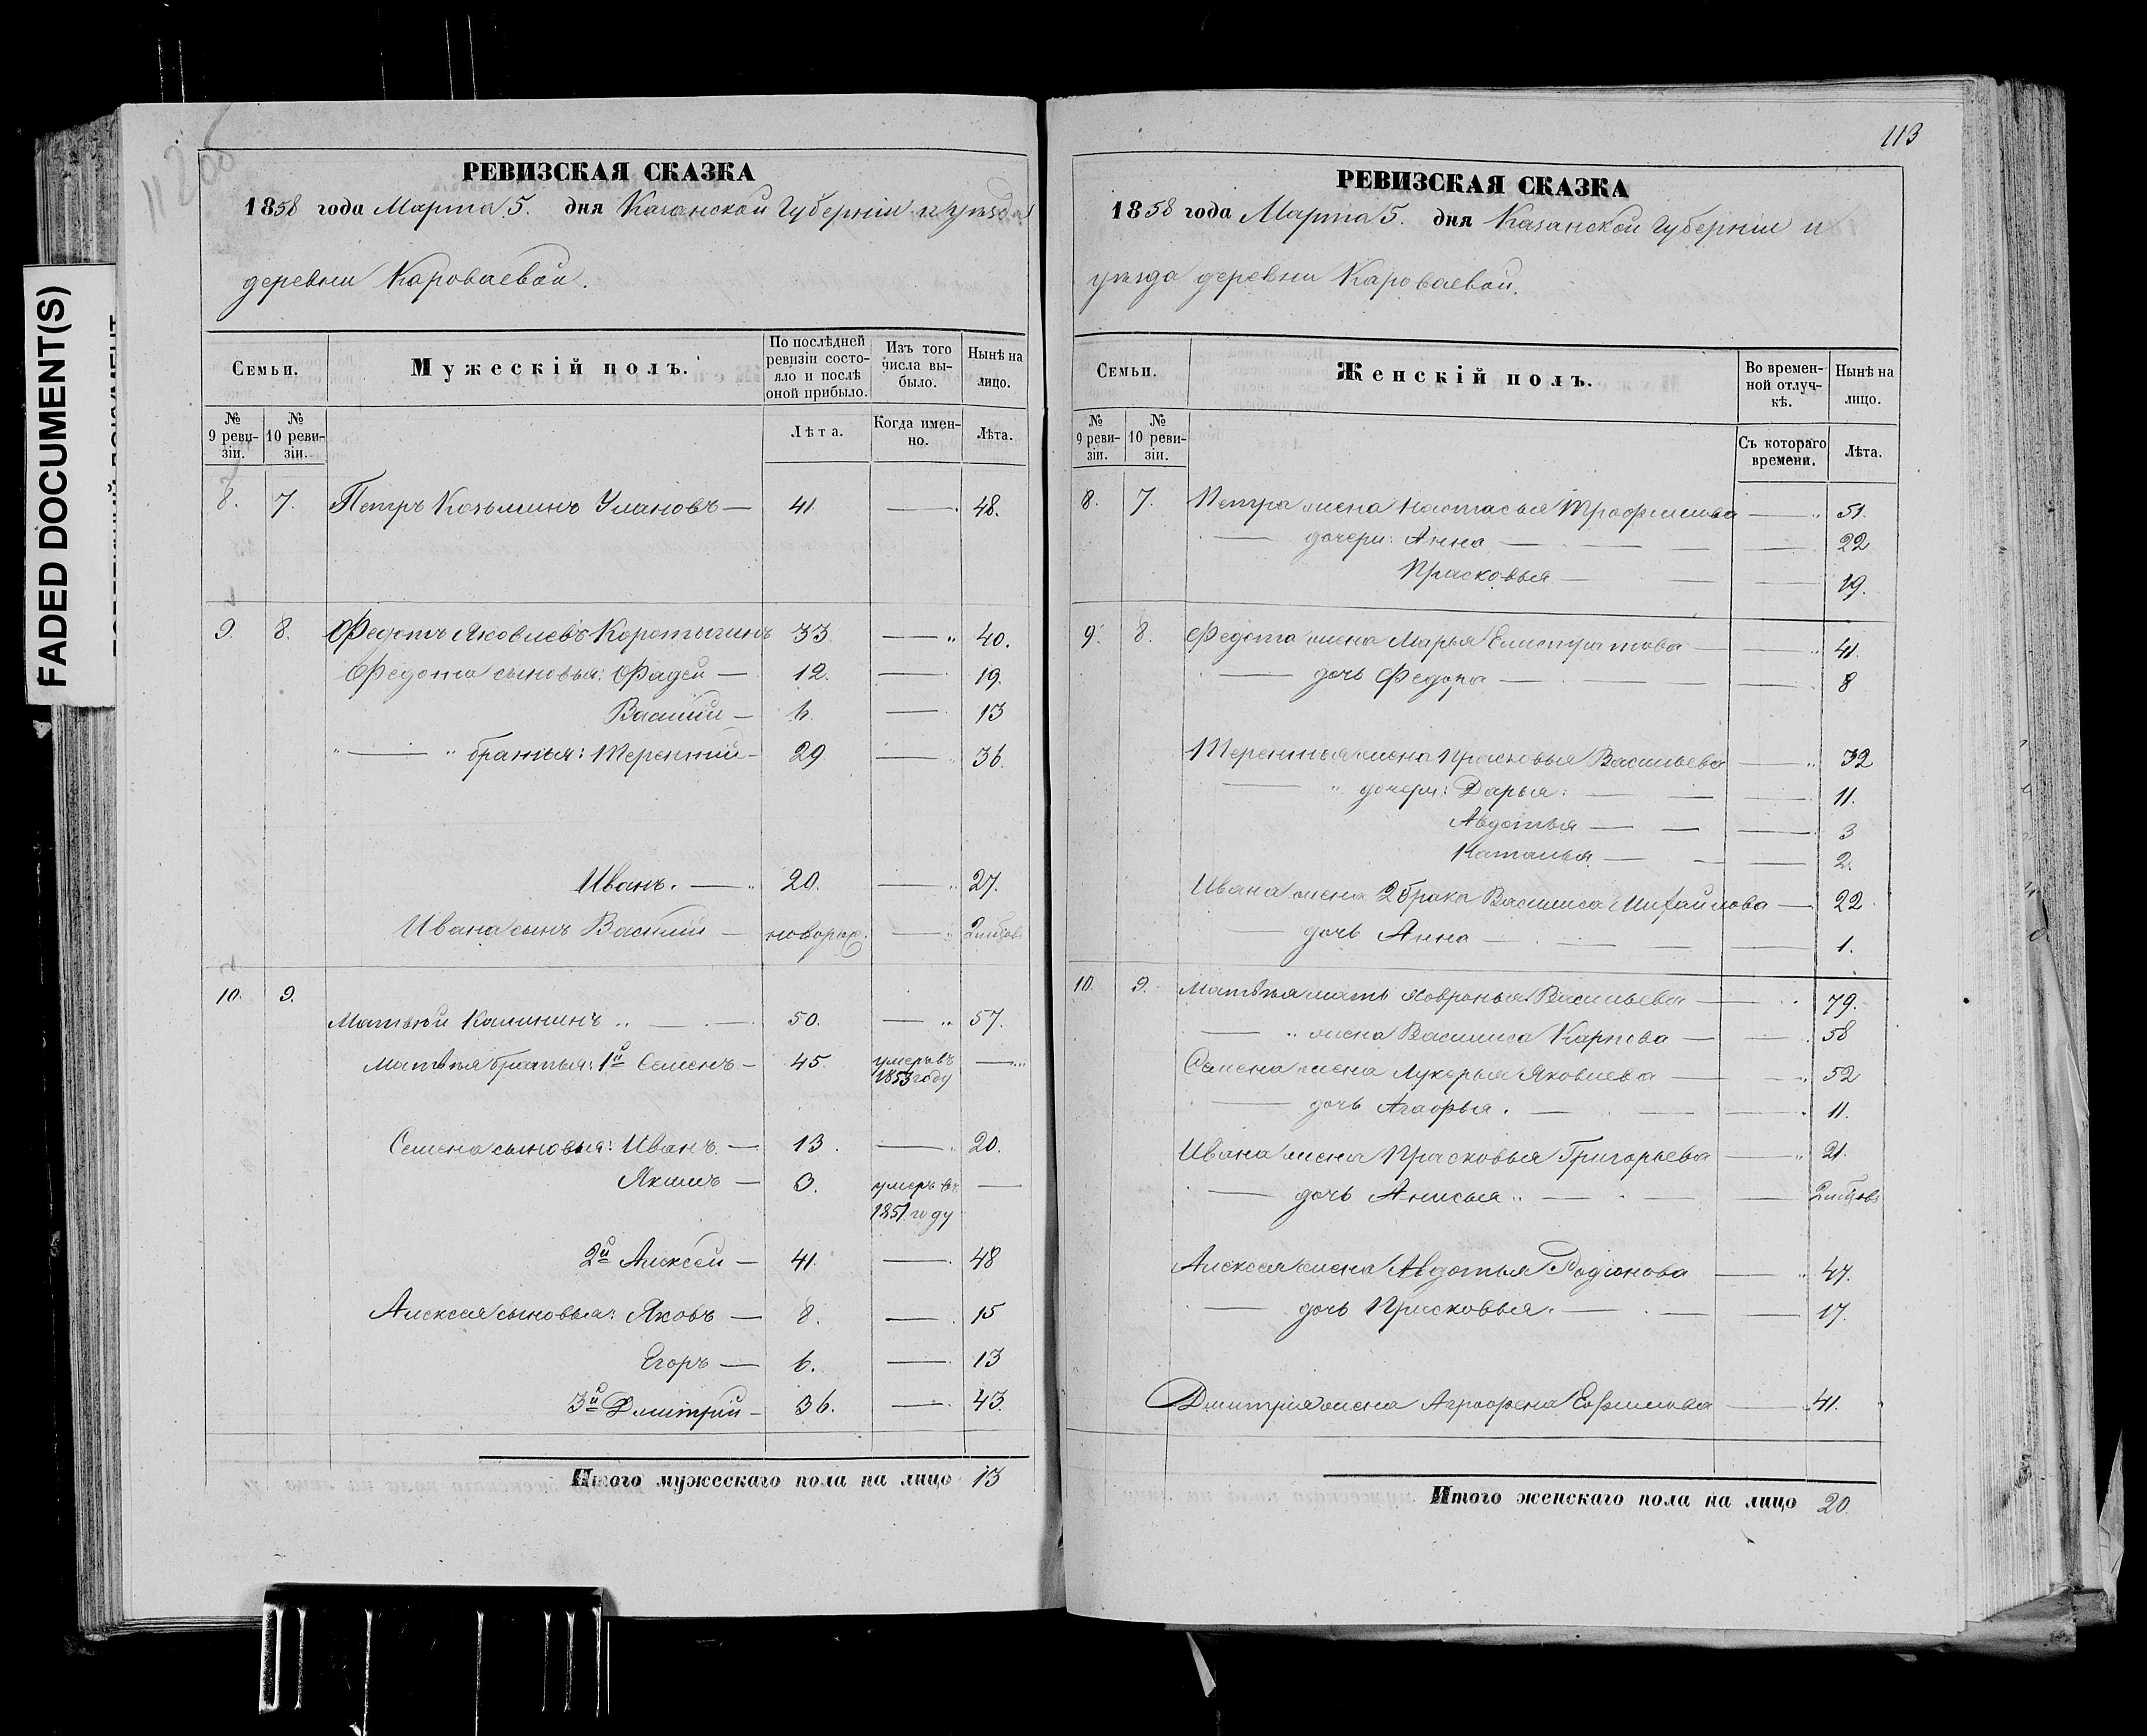 FADED DOCUMENT(S)
РЕВИЗСКАЯ СКАЗКА
1858 года Марта 5. дня Казанской Губерніи и уѣзда
деревни Короваевой.
Семьи.
Мужескій полъ.
По послѣдней ревизіи состояло и послѣ оной прибыло.
Изъ того числа выбыло.
Нынѣ на лицо.
№ 9 ревизіи.
№ 10 ревизіи.
Лѣта.
Когда именно.
Лѣта.
8. 7. Петръ Козьминъ Улановъ — 41 — 48.
9. 8. Федотъ Яковлевъ Коротыгинъ 33 — " 40.
Федота сыновья: Фадей — 12. — 19.
Василий — 6. — 13
" — " братья: Терентий — 29 — 36
Иванъ. — 20. — 27.
Ивана сынъ Василий — новорож. —
10. 9.
Матвѣй Калининъ .. — 50. — " 57.
Матвѣя братья: 1й Семенъ — 45. умеръ въ 1853 году —
Семена сыновья: Иванъ. — 13. — 20.
Якимъ — 3. умеръ въ 1851 году —
2й Алексей — 41. — 48
Алексея сыновья: Яковъ — 8. — 15
Егоръ — 6. — 13
3й Дмитрий — 36. — 43.
Итого мужескаго пола на лицо 13
113
РЕВИЗСКАЯ СКАЗКА
1858 года Марта 5. дня Казанской Губерніи и
уѣзда деревни Короваевой.
Семьи.
Женскій полъ.
Во временной отлучкѣ.
Нынѣ на лицо.
№ 9 ревизіи.
№ 10 ревизіи.
Съ котораго времени.
Лѣта.
8. 7. Петра жена Настасья Трофимова — 51.
— дочери: Анна — — 22
Прасковья — — 19.
9. 8. Федота жена Марья Елистратова — 41.
— дочь Федора — — 8
Терентья жена Прасковья Васильева — 32
— " дочери: Дарья: — — 11.
Авдотья — — 3
Наталья — — 2.
Ивана жена 2 брака Василиса Михайлова — 22
— дочь Анна — — 1.
10. 9. Матвѣя мать Ховронья Васильева — 79.
— " жена Василиса Карпова — 58
Семена жена Лукерья Яковлева — 52
— дочь Агафья. — — 11.
Ивана жена Прасковья Григорьева — 21.
— дочь Анисья.. — —
Алексея жена Авдотья Родіонова — 47.
— дочь Прасковья. — — 17.
Дмитрия жена Аграфена Ефимова — 41.
Итого женскаго пола на лицо 20.